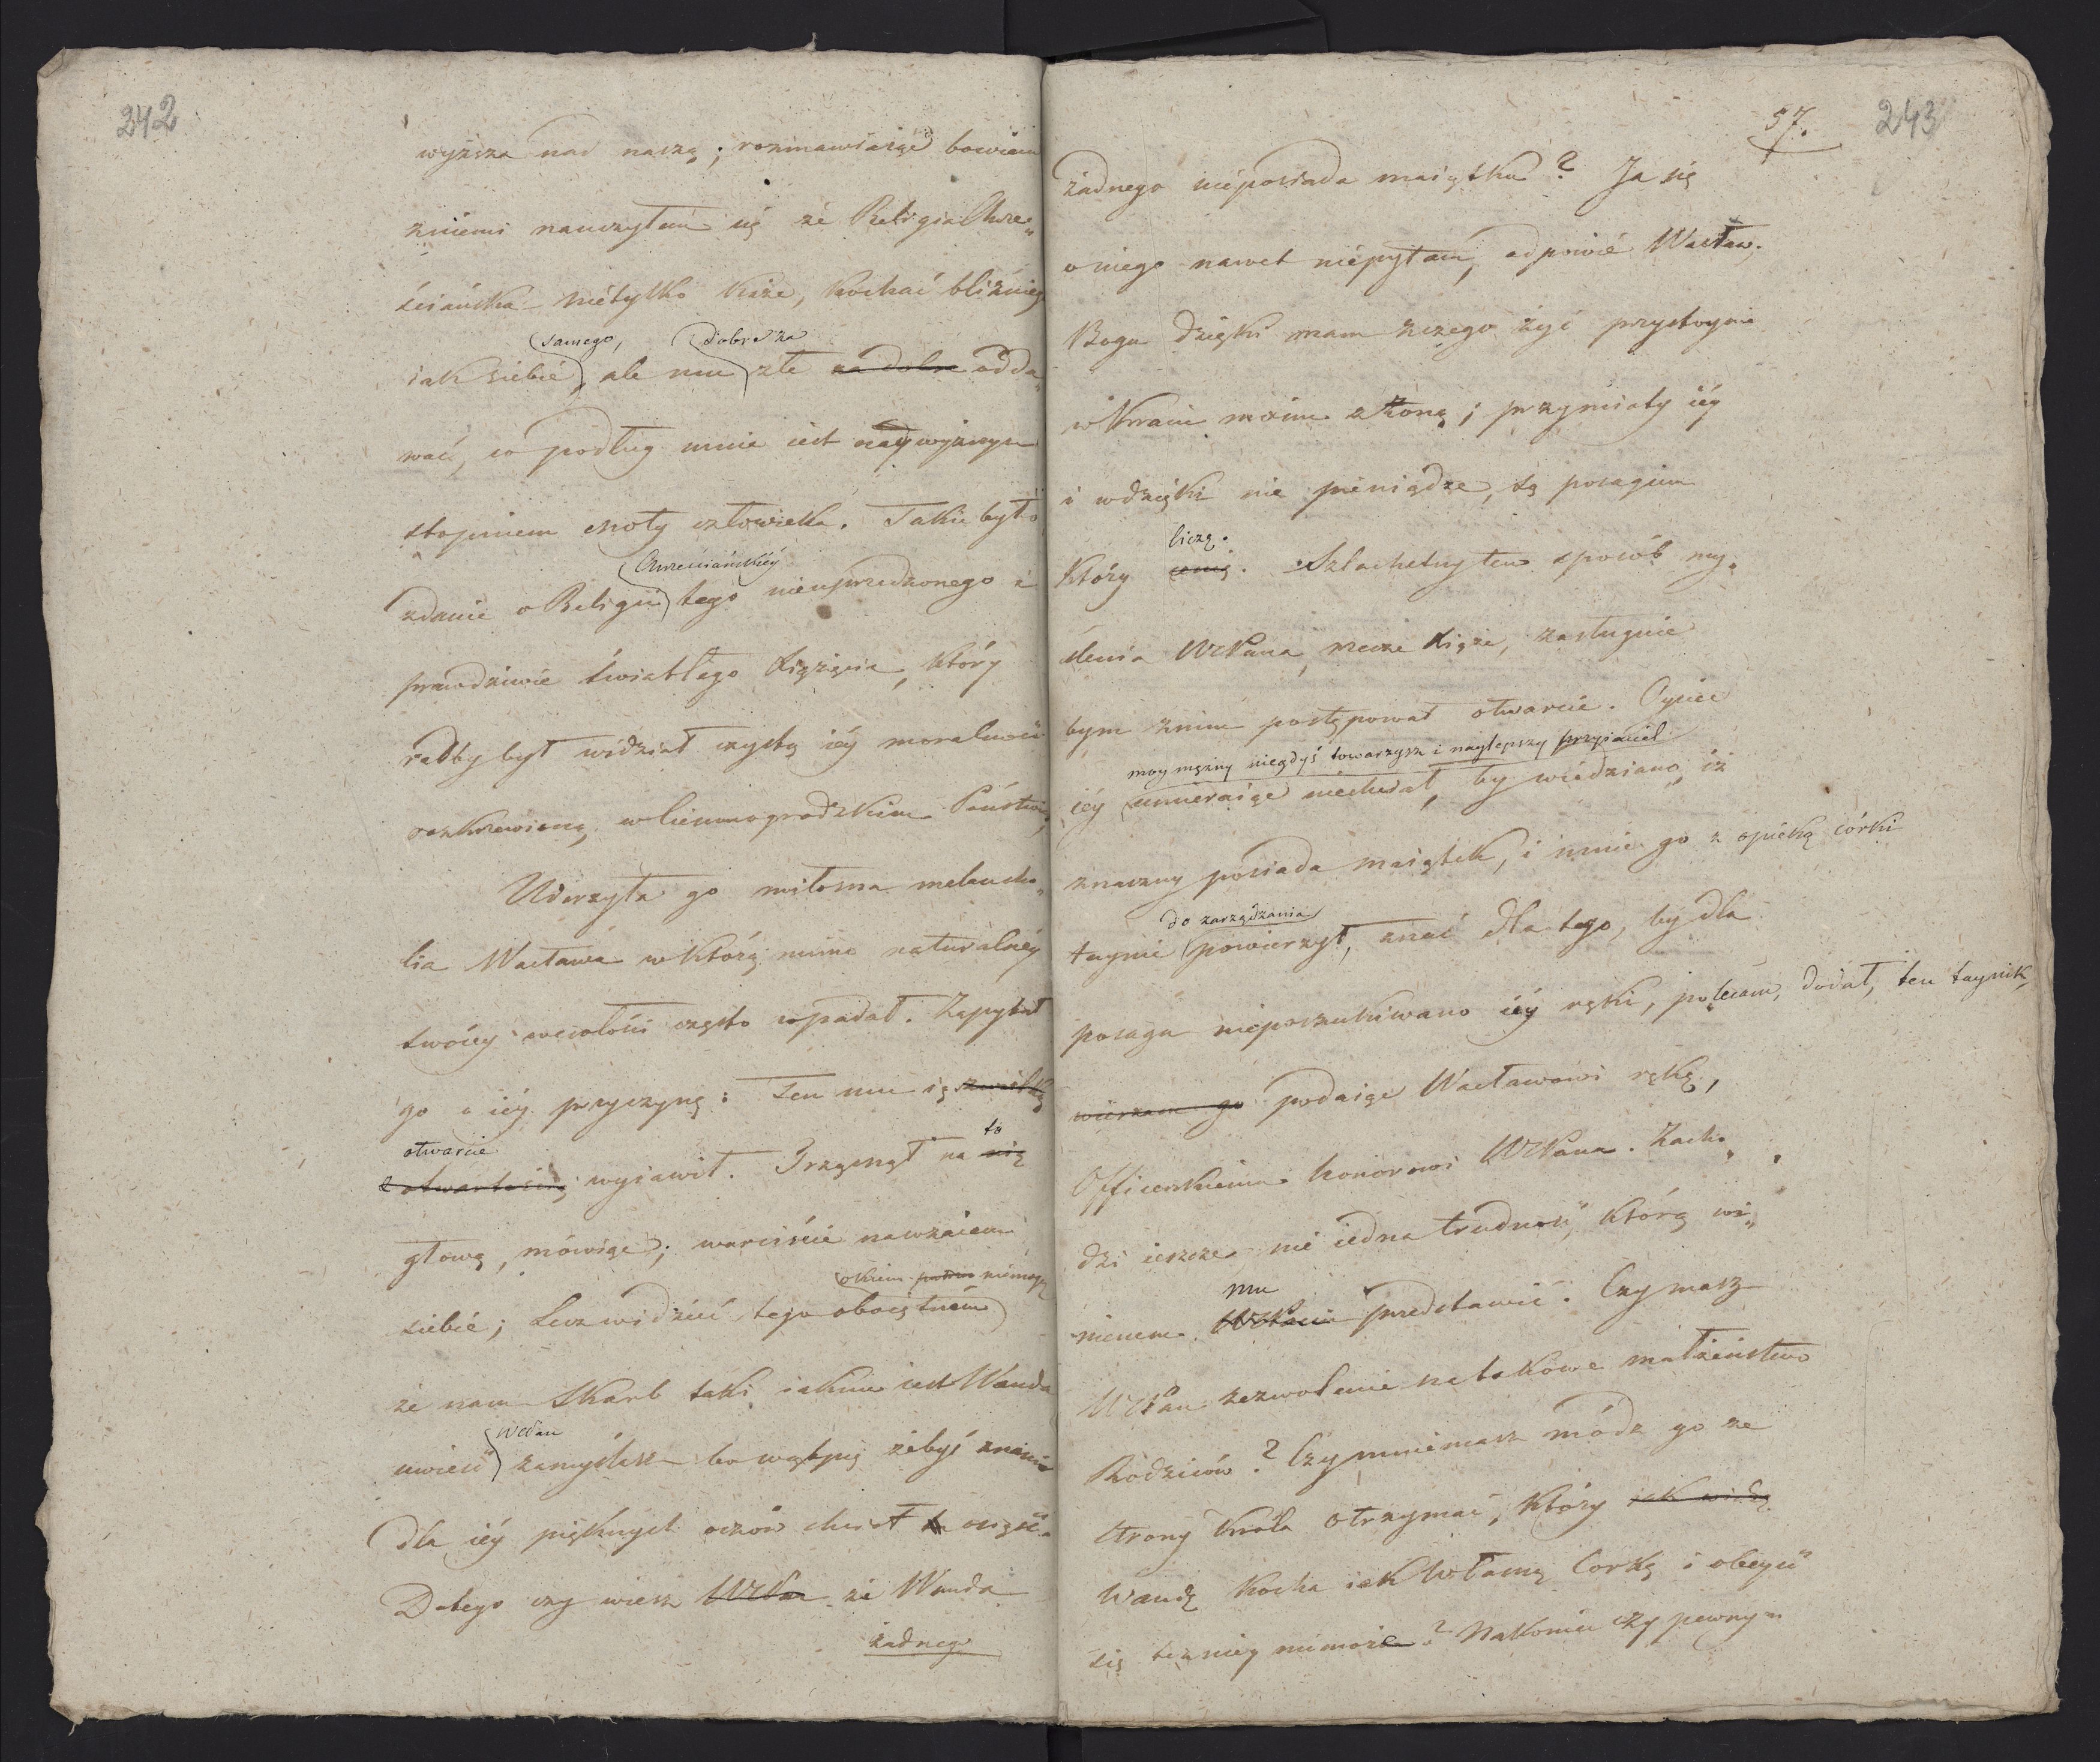 242
wyższa nad naszą; rozmawiaiąc bowiem
zniemi nauczyłem się że Religia Chrze„
ściańska nietylko każe, kochać bliźnieg
samego, dobre za
iak siebie, ale mu złe za dobre odda„
wać, co podług mnie iest naywyższym
stopniem cnoty człowieka. Takie było
Chrześciańskiéy
zdanie o Religii tego nieuprzedzonego i
prawdziwie światłego Xiążęcia, który
radby był widział czystą iéy moralność
rozkrzewioną, w Państwie
Uderzyła go miłosna melancho„
lia Wacława w którą mimo naturalnéy
swoiéy wesołości często wpadał. Zapytał
go o iéy przyczynę: Ten mu ią
otwarcie to
z otwartością, wyiawił. Trząsnął na nią
głową, mówiąc; warciście nawzaiem
okiem niemogę
siebie; Lecz widzieć tego oboiętném
że nam Skarb taki iakim iest Wanda
WCPan
uwieść zamyślasz bo wątpię żebyś znami
dla iéy pięknych oczów chciał osiąść.
Dotego czy wiesz WCPan że Wanda
żadnego
57. 243
żadnego nieposiada maiątku? Ja się
o niego nawet niepytam, odpowié Wacław;
Bogu dzięki mam zczego żyć przystoynie
w Kraiu moim z Żoną; przymioty iéy
i wdzięki nie pieniądze, są posagiem
liczę.
który cenię. Szlachetny ten sposób my„
ślenia WCPana, rzecze Xiąże, zasługuie
bym znim postępował otwarcie. Oyciec
moy mężny niegdyś towarzysz i naylepszy przyiaciel
iéy umieraiąc niechciał, by wiedziano, iż
znaczny posiada maiątek, i mnie go z opieką córki
do zarządzania
taynie powierzył, znać dla tego, by dla
posagu nieposzukiwano iéy ręki, polecam, dodał, ten taynik,
wierzam go podaiąc Wacławowi rękę,
Officerskiemu honorowi WCPana. Zacho„
dzi ieszcze nie iedna trudność, którą wi„
mu
nienem WCPanu przedstawić. Czy masz
WCPan zezwolenie na takowe małżeństwo
Rodziców? Czy mniemasz módz go ze
strony Króla otrzymać, który iak widzę
Wandę kocha iak własną Corkę i obeyść
się bez niéy niemoże? Nakoniec czy pewnym